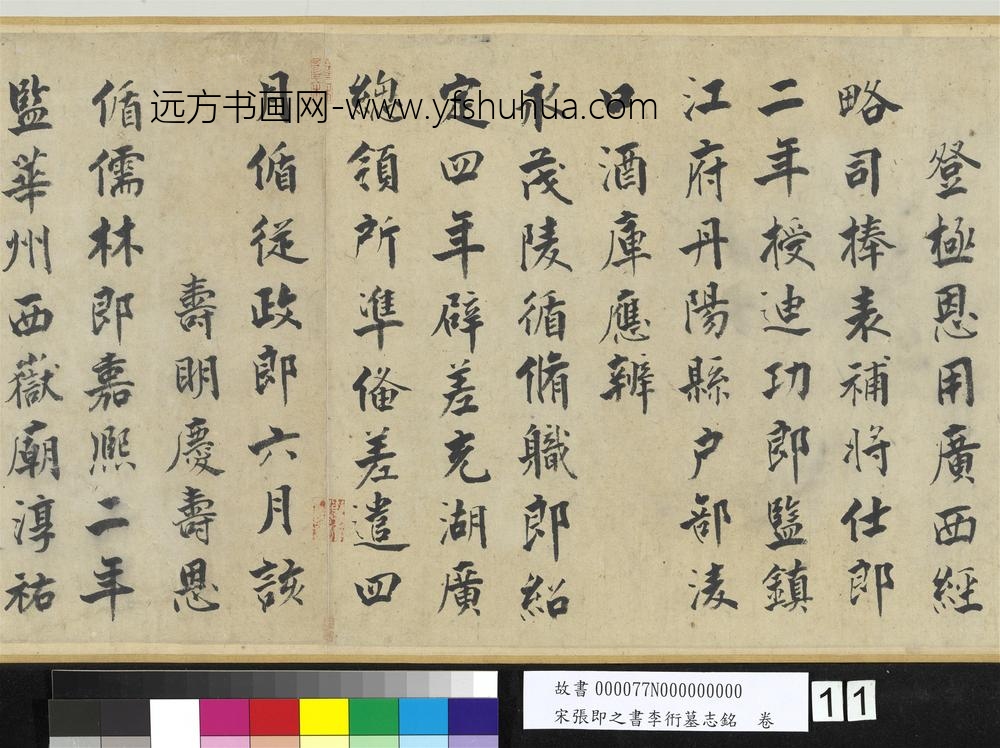 登極恩用廣西經
略司捧表補將仕郎
二年授迪功郎監鎮
江府丹陽縣户部淩
口酒庫應辦
永茂陵循脩職郎紹
定四年辟差充湖廣
總領所準俻差遣四
月循從政郎六月該
壽明慶壽恩
循儒林郎嘉熙二年
監華州西嶽廟淳祐
远方书画网-www.yfshuhua.com
故書 000077N000000000
宋張即之書李衎墓志銘 卷
11